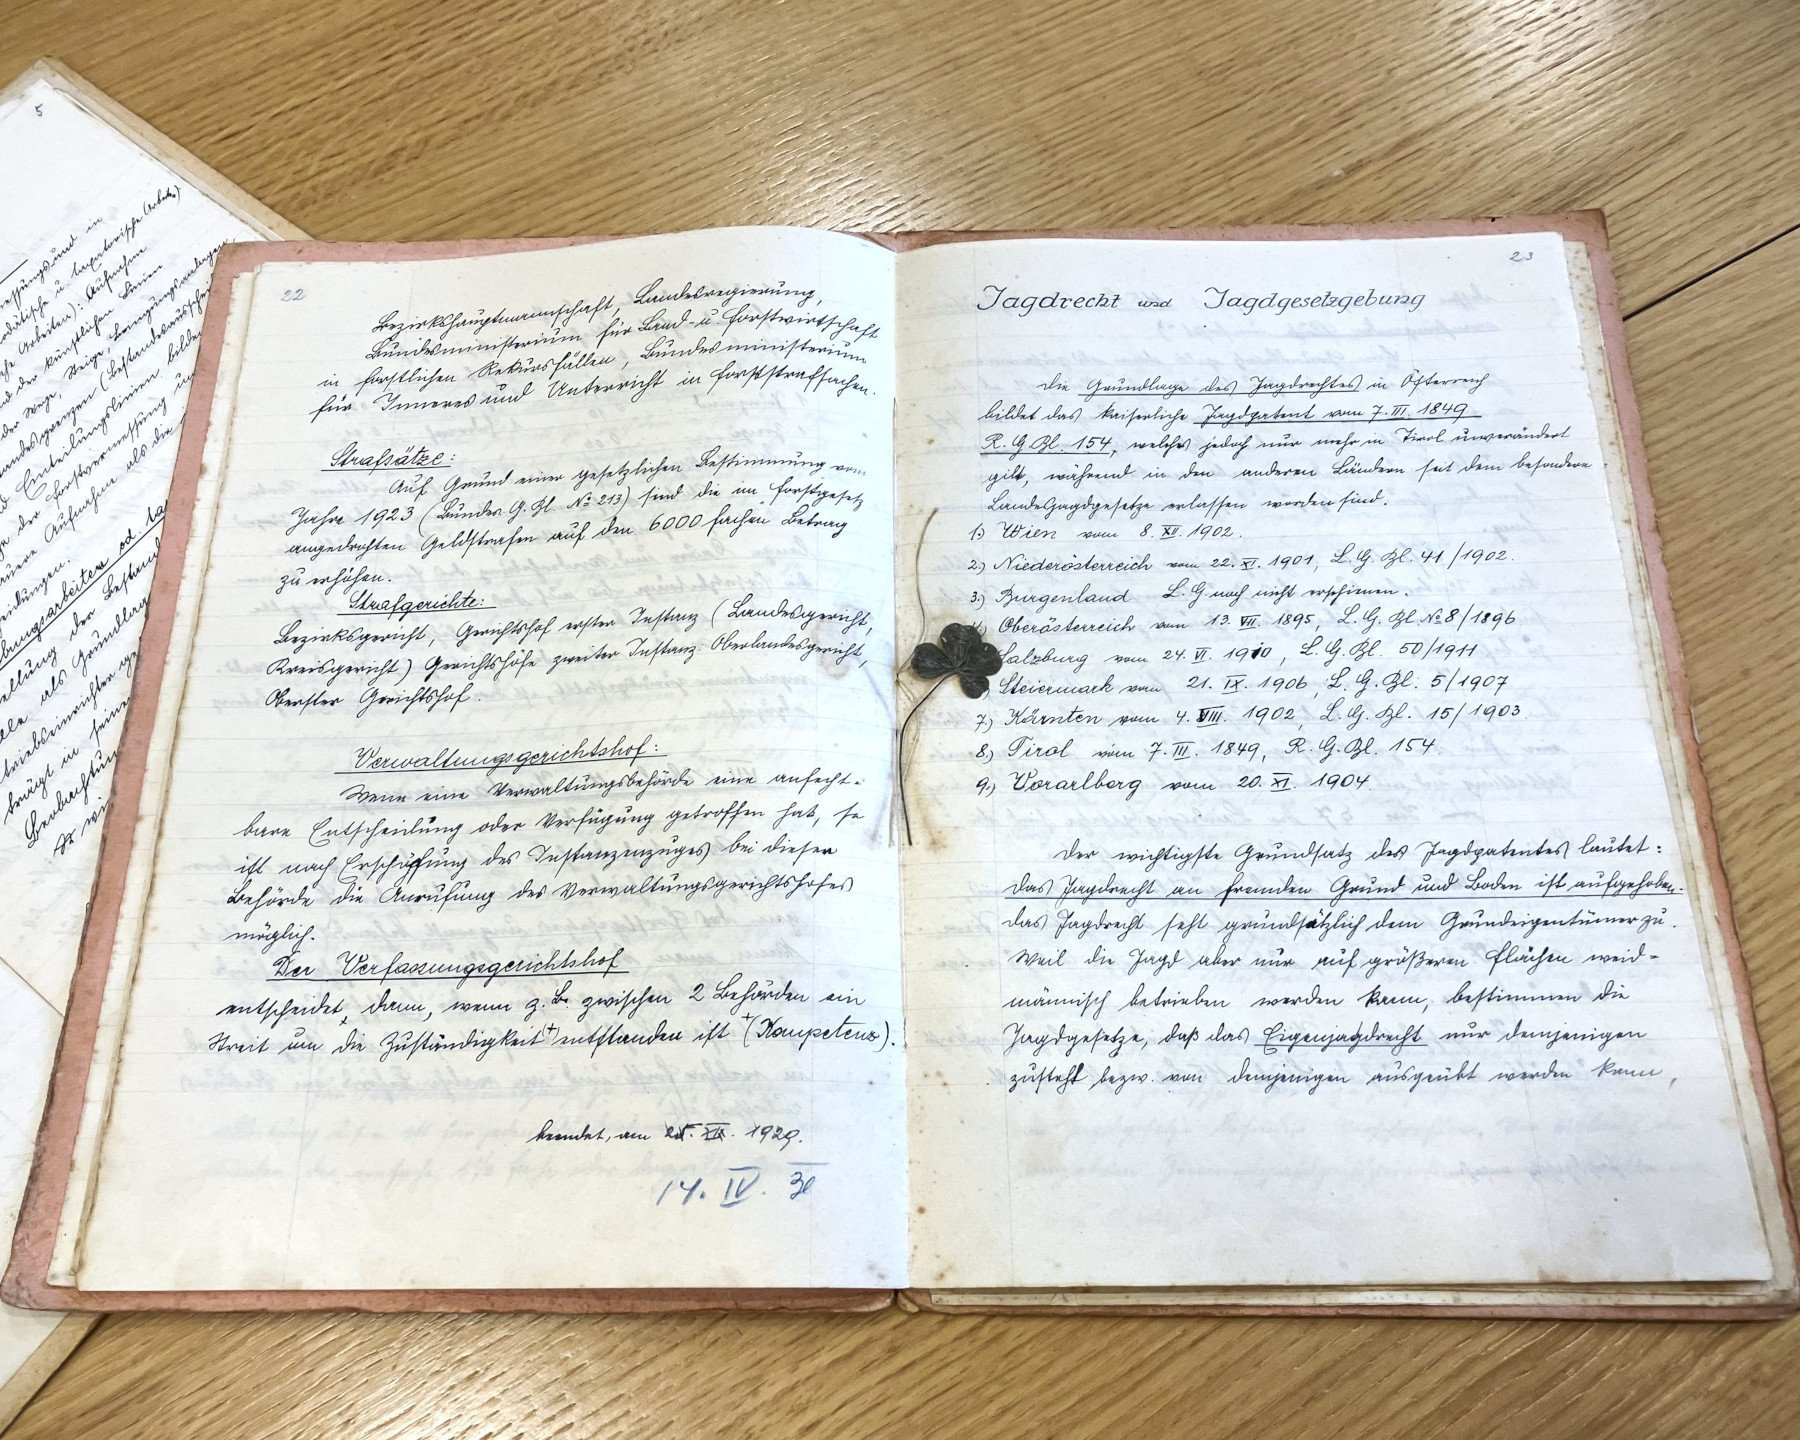 5
22
Bezirkshauptmannschaft, Landesregierung,
Bundesministerium für Land- u. Forstwirtschaft
in forstlichen Rekursfällen, Bundesministerium
für Inneres und Unterricht in Forststrafsachen.
Strafsätze:
Auf Grund einer gesetzlichen Bestimmung vom
Jahre 1923 (Bundes G. Bl. № 213) sind die im Forstgesetz
angedrohten Geldstrafen auf den 6000 fachen Betrag
zu erhöhen.
Strafgerichte:
Bezirksgericht, Gerichtshof erster Instanz (Landesgericht,
Kreisgericht) Gerichtshöfe zweiter Instanz: Oberlandesgericht,
Oberster Gerichtshof.
Verwaltungsgerichtshof:
Wenn eine Verwaltungsbehörde eine anfecht-
bare Entscheidung oder Verfügung getroffen hat, so
ist nach Erschöpfung des Instanzenzuges bei dieser
Behörde die Anrufung des Verwaltungsgerichtshofes
möglich.
Der Verfassungsgerichtshof
entscheidet, dann, wenn z. B. zwischen 2 Behörden ein
Streit um die Zuständigkeit + entstanden ist + (Kompetenz).
beendet, am XII. 1929.
14. IV. 30
23
Jagdrecht und Jagdgesetzgebung
Die Grundlage des Jagdrechtes in Österreich
bildet das kaiserliche Jagdpatent vom 7. III. 1849
R. G. Bl. 154, welches jedoch nur mehr in Tirol unverändert
gilt, während in den anderen Ländern seit dem besondere
Landesjagdgesetze erlassen worden sind.
1.) Wien vom 8. XII. 1902.
2.) Niederösterreich vom 22. XI. 1901, L. G. Bl. 41/1902.
3.) Burgenland L. G. noch nicht erschienen.
4.) Oberösterreich vom 13. VII. 1895, L. G. Bl № 8/1896
Salzburg vom 24. VI. 1910, L. G. Bl. 50/1911
) Steiermark vom 21. IX. 1906, L. G. Bl. 5/1907
7.) Kärnten vom 4. VIII. 1902, L. G. Bl. 15/1903
8.) Tirol vom 7. III. 1849, R. G. Bl. 154.
9.) Vorarlberg vom 20. XI. 1904.
Der wichtigste Grundsatz des Jagdpatentes lautet:
Das Jagdrecht an fremden Grund und Boden ist aufgehoben.
Das Jagdrecht seht grundsätzlich dem Grundeigentümer zu.
Weil die Jagd aber nur auf größeren Flächen weid-
männisch betrieben werden kann, bestimmen die
Jagdgesetze, daß das Eigenjagdrecht nur demjenigen
zusteht bezw. von demjenigen ausgeübt werden kann,